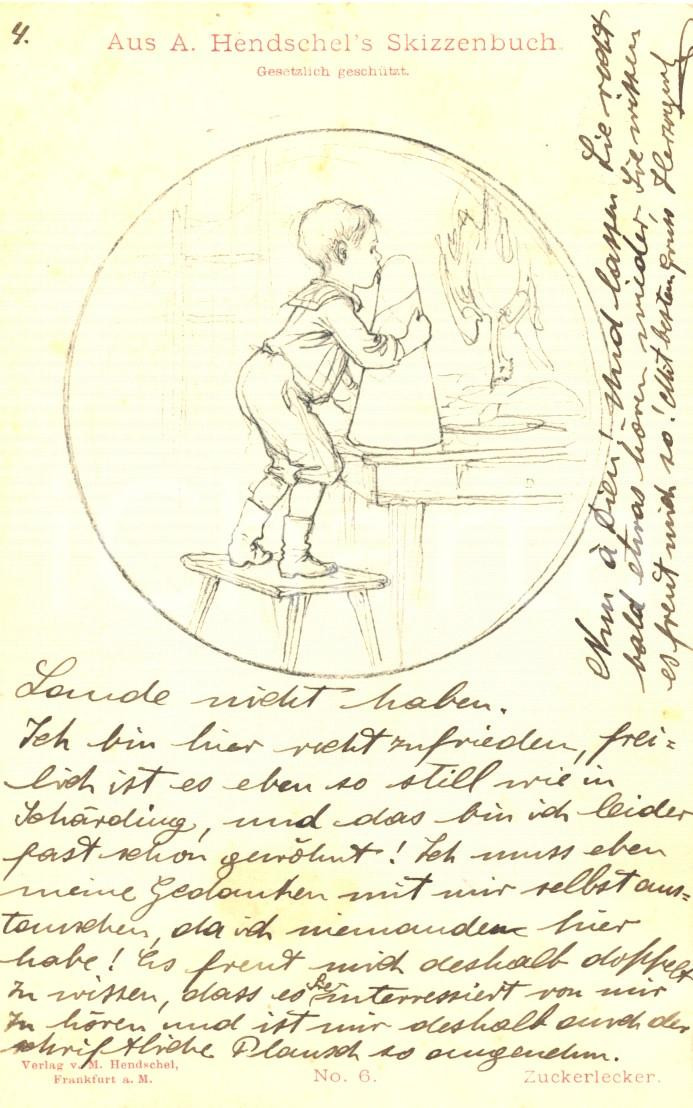 4.
Aus A. Hendschel's Skizzenbuch.
Gesetzlich geschützt.
Lande nicht haben.
Ich bin hier recht zufrieden, frei-
lich ist es eben so still wie in
Schärding, und das bin ich leider
fast schon gewöhnt! Ich muss eben
meine Gedanken mit mir selbst aus-
tauschen, da ich niemanden hier
habe! Es freut mich deshalb doppelt
zu wissen, dass es Sie interressiert von mir
zu hören und ist mir deshalb auch der
schriftliche Plausch so angenehm.
Nun à Dieu! Und lassen Sie recht
bald etwas hören wieder, Sie wissen
es freut mich so! Mit bestem Gruss
Verlag v. M. Hendschel,
Frankfurt a. M.
No. 6.
Zuckerlecker.